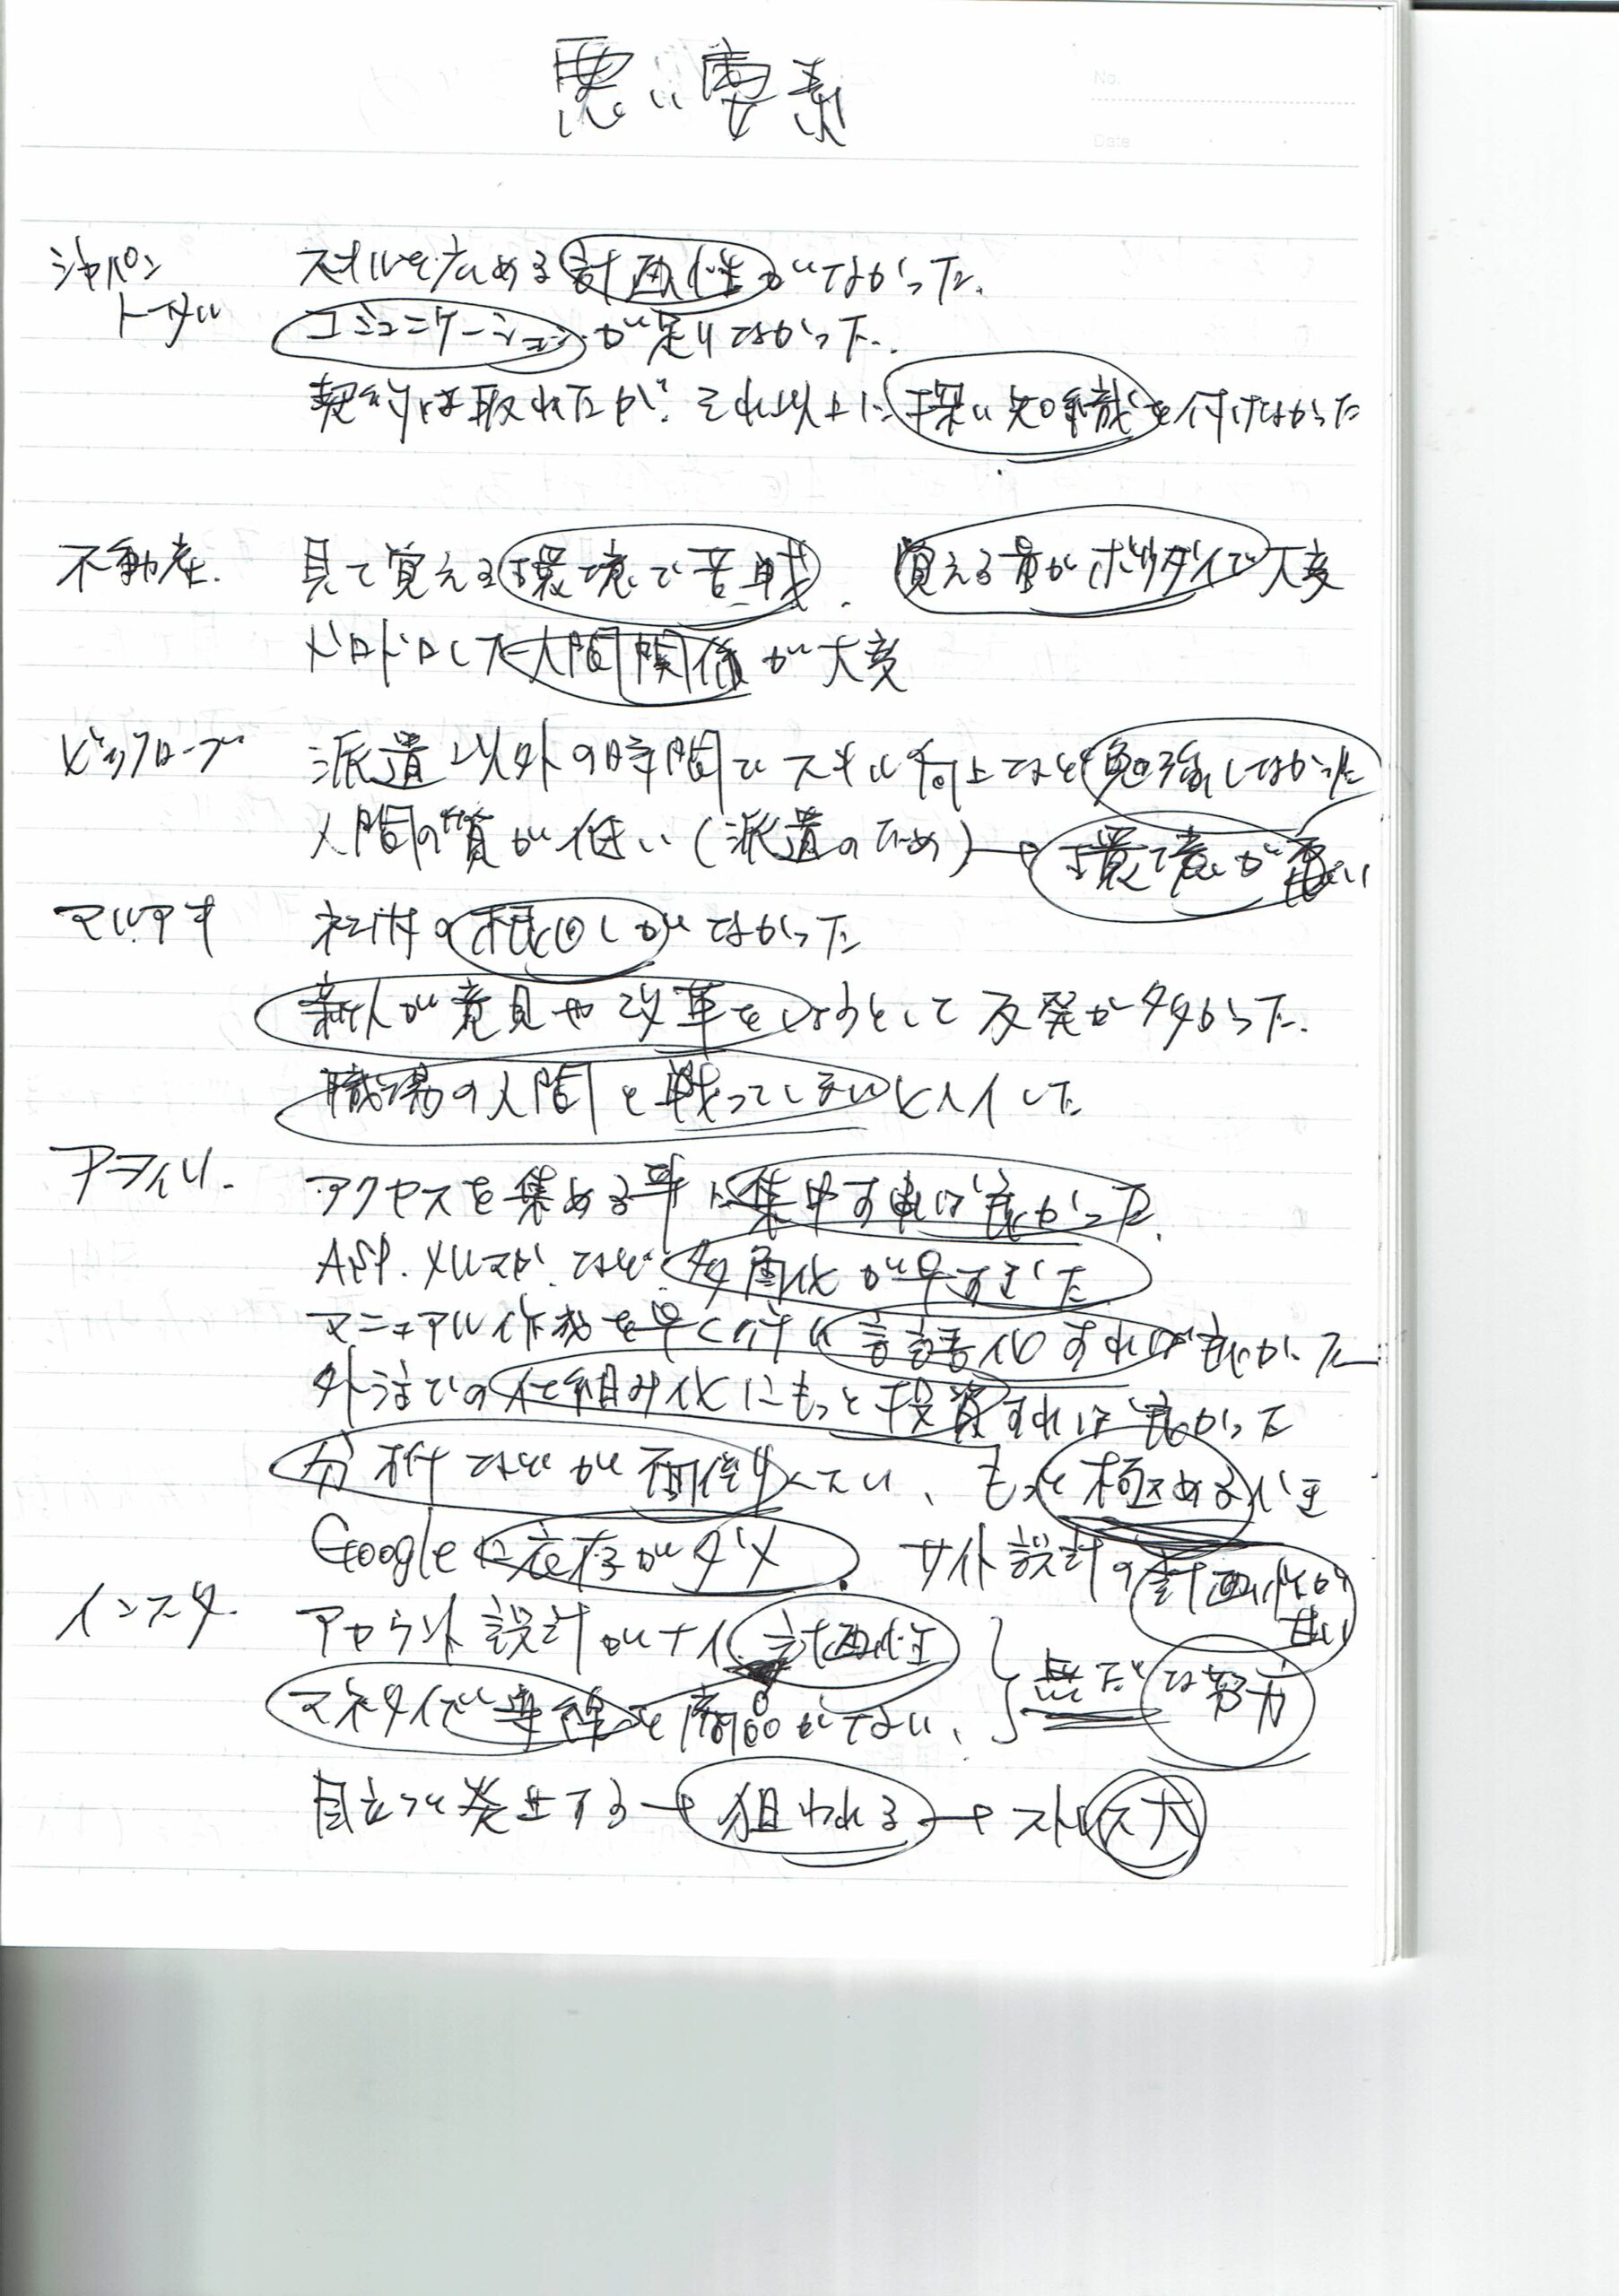 悪い要素
No.
Date
ジャパン
トータル
スキルを広める計画性がなかった。
コミュニケーションが足りなかった。
契約は取れたが、それ以上に深い知識を付けなかった
不動産. 見て覚える環境で苦戦. 覚える量がボリュームで大変
ドロドロした人間関係が大変
ビッグローブ 派遣以外の時間でスキル向上など勉強しなかった
人間の質が低い(派遣のため)→環境が悪い
マルアキ 社内の根回しがなかった
新人が意見や改革をしようとして反発が多かった.
職場の人間と戦ってしまいヒヘイした
アフィリ. アクセスを集める事に集中すれば良かった.
ASP.メルマガ.など多角化が早すぎた
マニュアル作成を早く行い言語化すれば良かった
外注での仕組み化にもっと投資すれば良かった
分析などが面倒くさい、もっと極めるべき
Googleに依存がダメ. サイト設計の計画性が甘い
インスタ. アカウント設計がナイ 計画性
マネタイズ導線と商品がない、
無だな努力
目立つと発生する→狙われる→ストレス大